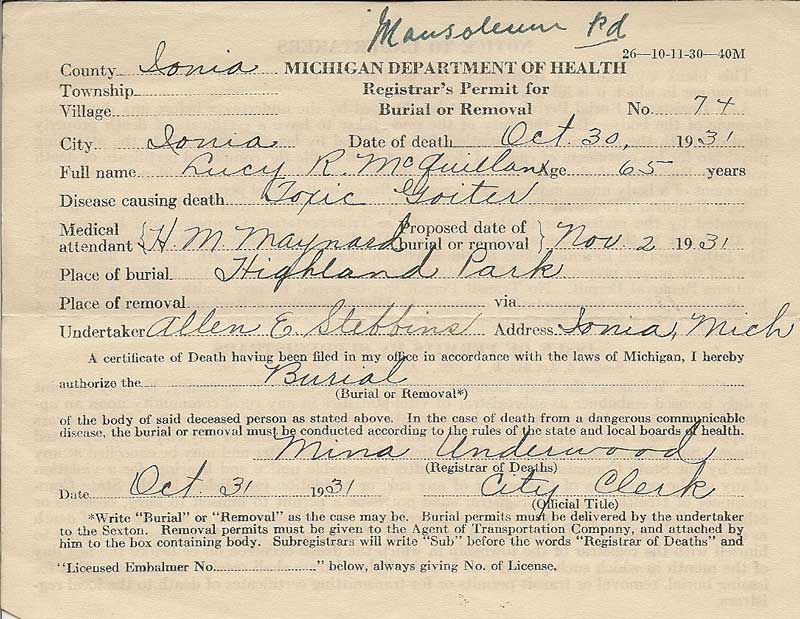 Mausoleum Pd
26—10-11-30—40M
County Ionia MICHIGAN DEPARTMENT OF HEALTH
Township Registrar's Permit for
Village Burial or Removal No. 74
City Ionia Date of death Oct. 30, 1931
Full name Lucy R. McQuillan Age 65 years
Disease causing death Toxic Goiter
Medical attendant H. M. Maynard Proposed date of burial or removal Nov. 2 1931
Place of burial Highland Park
Place of removal via
Undertaker Allen E. Stebbins Address Ionia, Mich
A certificate of Death having been filed in my office in accordance with the laws of Michigan, I hereby
authorize the Burial
(Burial or Removal*)
of the body of said deceased person as stated above. In the case of death from a dangerous communicable
disease, the burial or removal must be conducted according to the rules of the state and local boards of health.
Mina Underwood
(Registrar of Deaths)
Date Oct. 31 1931 City Clerk
(Official Title)
*Write "Burial" or "Removal" as the case may be. Burial permits must be delivered by the undertaker
to the Sexton. Removal permits must be given to the Agent of Transportation Company, and attached by
him to the box containing body. Subregistrars will write "Sub" before the words "Registrar of Deaths" and
"Licensed Embalmer No. " below, always giving No. of License.